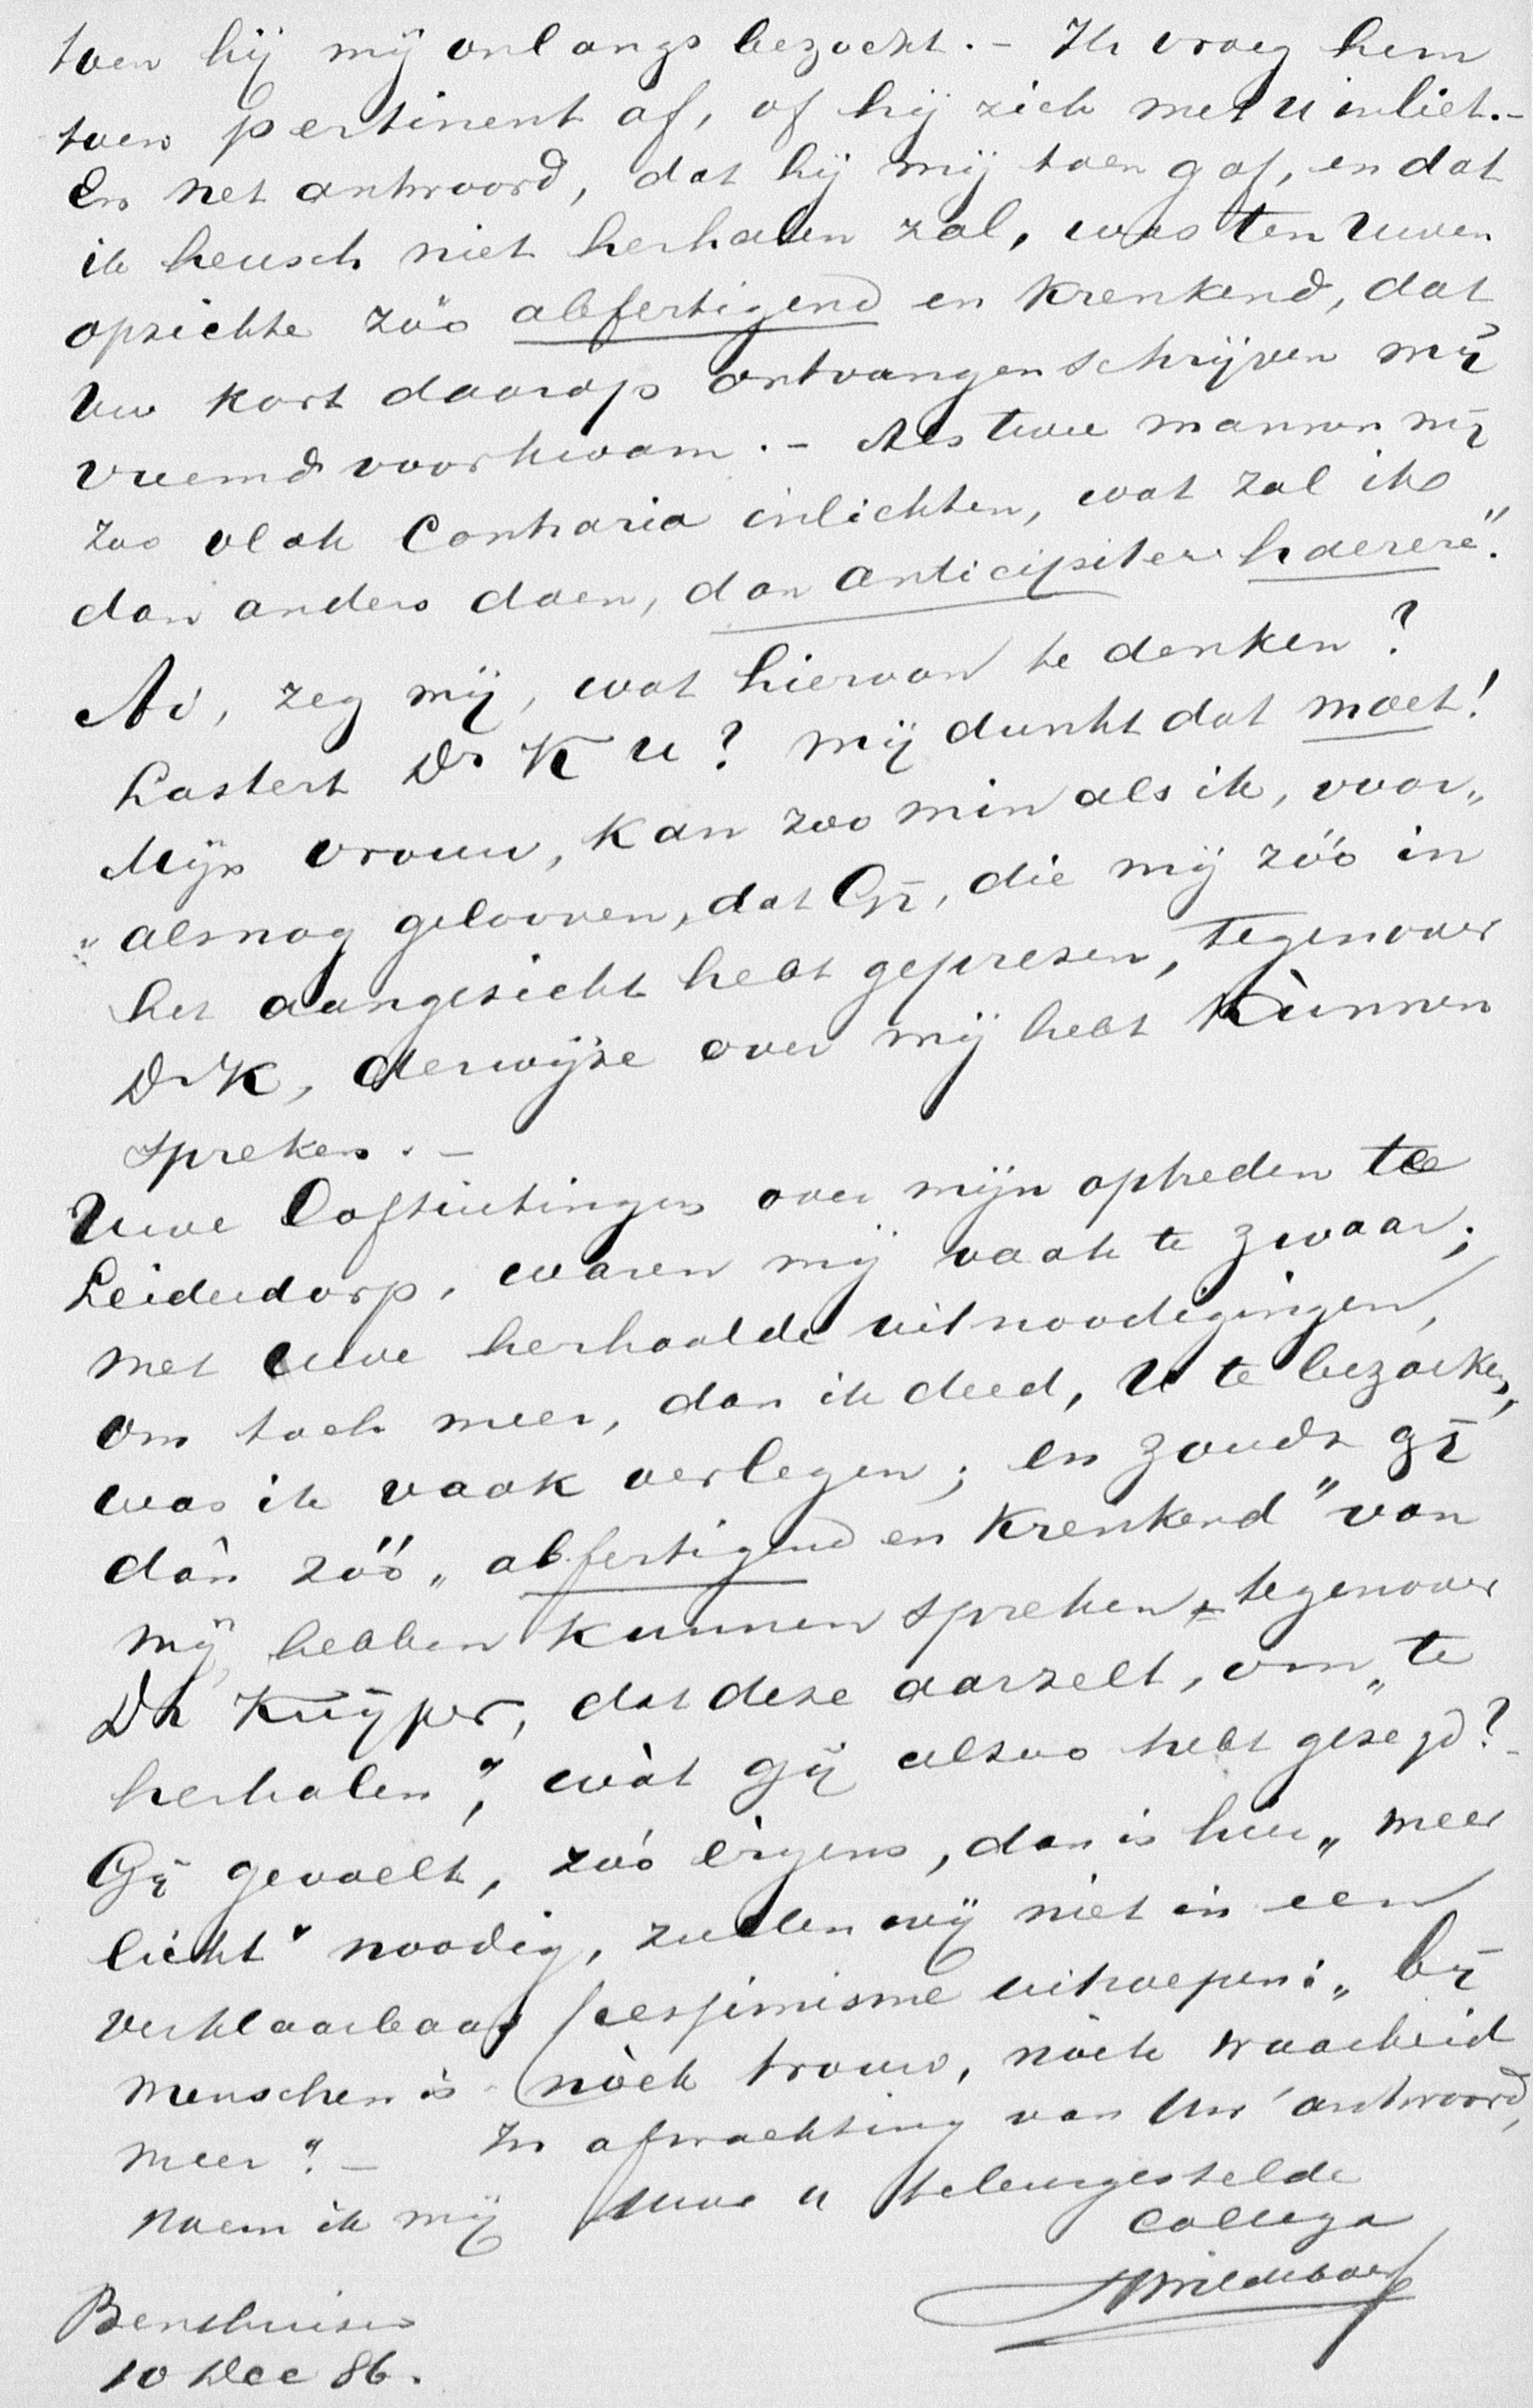 toen hij mij onlangs bezocht. – Ik vroeg hem
toen pertinent af, of hij zich met u inliet. –
En het antwoord, dat hij mij toen gaf, en dat
ik heusch niet herhalen zal, was ten uwen
opzichte zóó abfertigend en krenkend, dat
Uw kort daarop ontvangen schrijven mij
vreemd voorkwam. – Als twee mannen mij
zoo vlak contraria inlichten, wat zal ik
dan anders doen, dan anticipiter haerere".
Ai, zeg mij, wat hiervan te denken?
Lastert Dr K u? mij dunkt dat moet!
Mijn vrouw, kan zoo min als ik, voor„
„alsnog gelooven, dat Gij, die mij zóó in
het aangezicht hebt geprezen, tegenover
Dr K, derwijze over mij hebt kùnnen
spreken. –
Uwe loftuitingen over mijn optreden te
Leiderdorp, waren mij vaak te zwaar;
met uwe herhaalde uitnoodigingen,
om toch meer, dan ik deed, U te bezoeken,
was ik vaak verlegen; en zoudt gij
dàn zóó „abfertigend en krenkend" van
mij hebben kunnen spreken, tegenover
Dr Kuijper, dat deze aarzelt, om „te
herhalen", wàt gij alzoo hebt gezegd? –
Gij gevoelt, zóó èrgens, dan is hier „meer
licht" noodig, zullen wij niet in een
verklaarbaar pessimisme uitroepen: „bij
menschen is nòch trouw, nòch waarheid
meer". – In afwachting van Uw antwoord,
noem ik mij Uwe u teleurgestelde
collega
HWildeboer
Benthuizen
10 Dec 86.